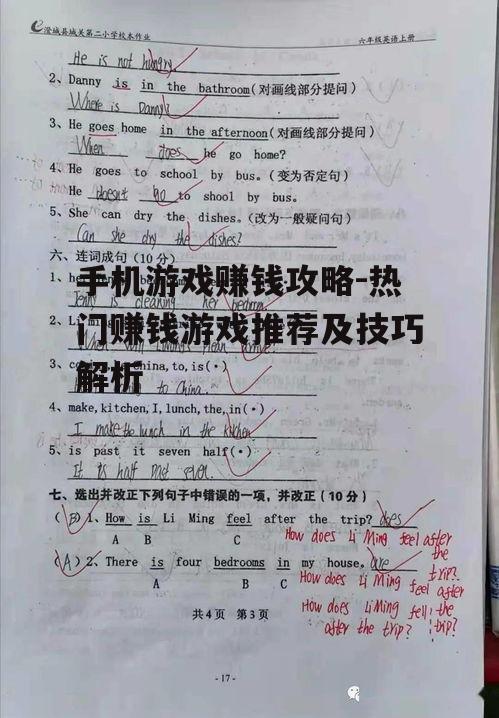 澄城县城关第二小学校本作业 六年级英语上册
He is not hungry
2、Danny is in the bathroom(对画线部分提问)
Where is Danny?
3、He goes home in the afternoon(对画线部分提问)
When does he go home?
4、He goes to school by bus.(变为否定句)
He doesn't go to shool by bus.
5、She can dry the dishes.(改为一般疑问句)
Can she dry the dishes?
六、连词成句(10分)
手机游戏赚钱攻略-热
is cleaning her bedroom
门赚钱游戏推荐及技巧
2、Li
解析
3、 China,to,is(•)
to China.
4、make,kitchen,I,lunch,the,in(•)
I make the lunch in the kitchen
5、is past it seven half(•)
It is half past seven.
七、选出并改正下列句子中错误的一项，并改正(10分)
(B)1、How is Li Ming feel after the trip? does
A B C
How does Li Ming feel after
the
trip?
(A)2、There is four bedrooms in my house. are
A B C
How does Li Ming feel after
the
trip?
How does Li Ming fell
after the trip?
共4页 第3页
- 17 -